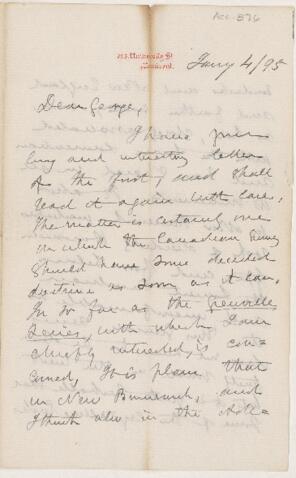 Acc-876
293 University St
Montreal.
Jany 4/95
Dear George,
I have your
long and interesting letter
of the first, and shall
read it again with care.
The matter is certainly one
in which the Canadian Survey
should have some decided
doctrine as soon as it can.
In so far as the Grenville
Series, with which I am
chiefly interested, is con=
cerned, it is plain that
in New Brunswick, and
I think also in the